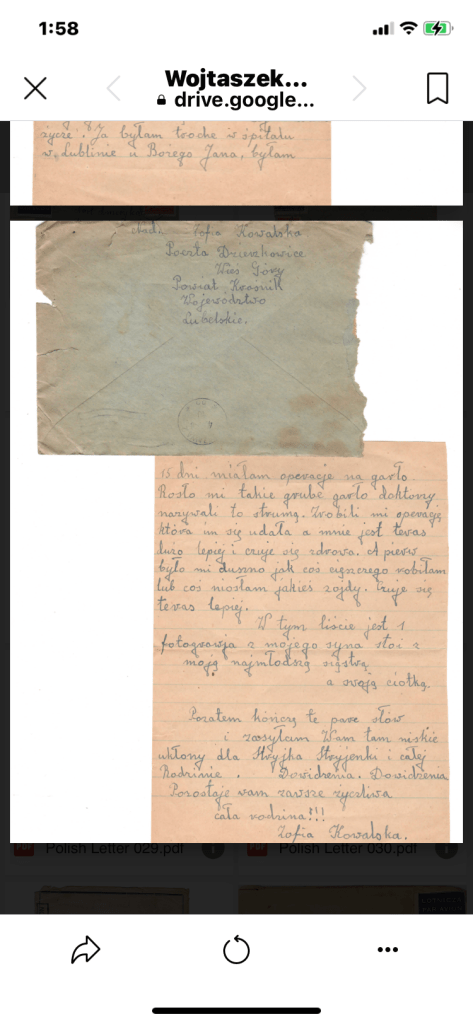 1:58
Wojtaszek...
drive.google...
życze. Ja byłam troche w śpitalu
w Lublinie u Bożego Jana, byłam
Nad. Zofia Kowalska
Poczta Dzierzkowice
Wieś Góry
Powiat Kraśnik
Województwo
Lubelskie.
15 dni miałam operacje na garło.
Rosło mi takie grube garło doktorzy
nazywali to strumą. Zrobili mi operację
która im się udała a mnie jest teras
lużo lepiej i czuje się zdrowa. A pierw
było mi duszno jak coś cięszczego robiłam
lub coś niosłam jakieś zojdy. Czuje się
teras lepiej.
W tym liście jest 1
fotografwja z mojego syna stoi z
moją najmłodszą sięstrą
a swoją ciotką.
Pozatem kończę te pare słów
i zasyłam Wam tam niskie
ukłony dla Stryjka Stryjenki i całej
Rodzinie. Dowidzenia. Dowidzenia
Pozostaje wam zawsze życzliwa
cała rodzina!!!
Zofia Kowalska.
Polish Letter 029.pdf
Polish Letter 030.pdf